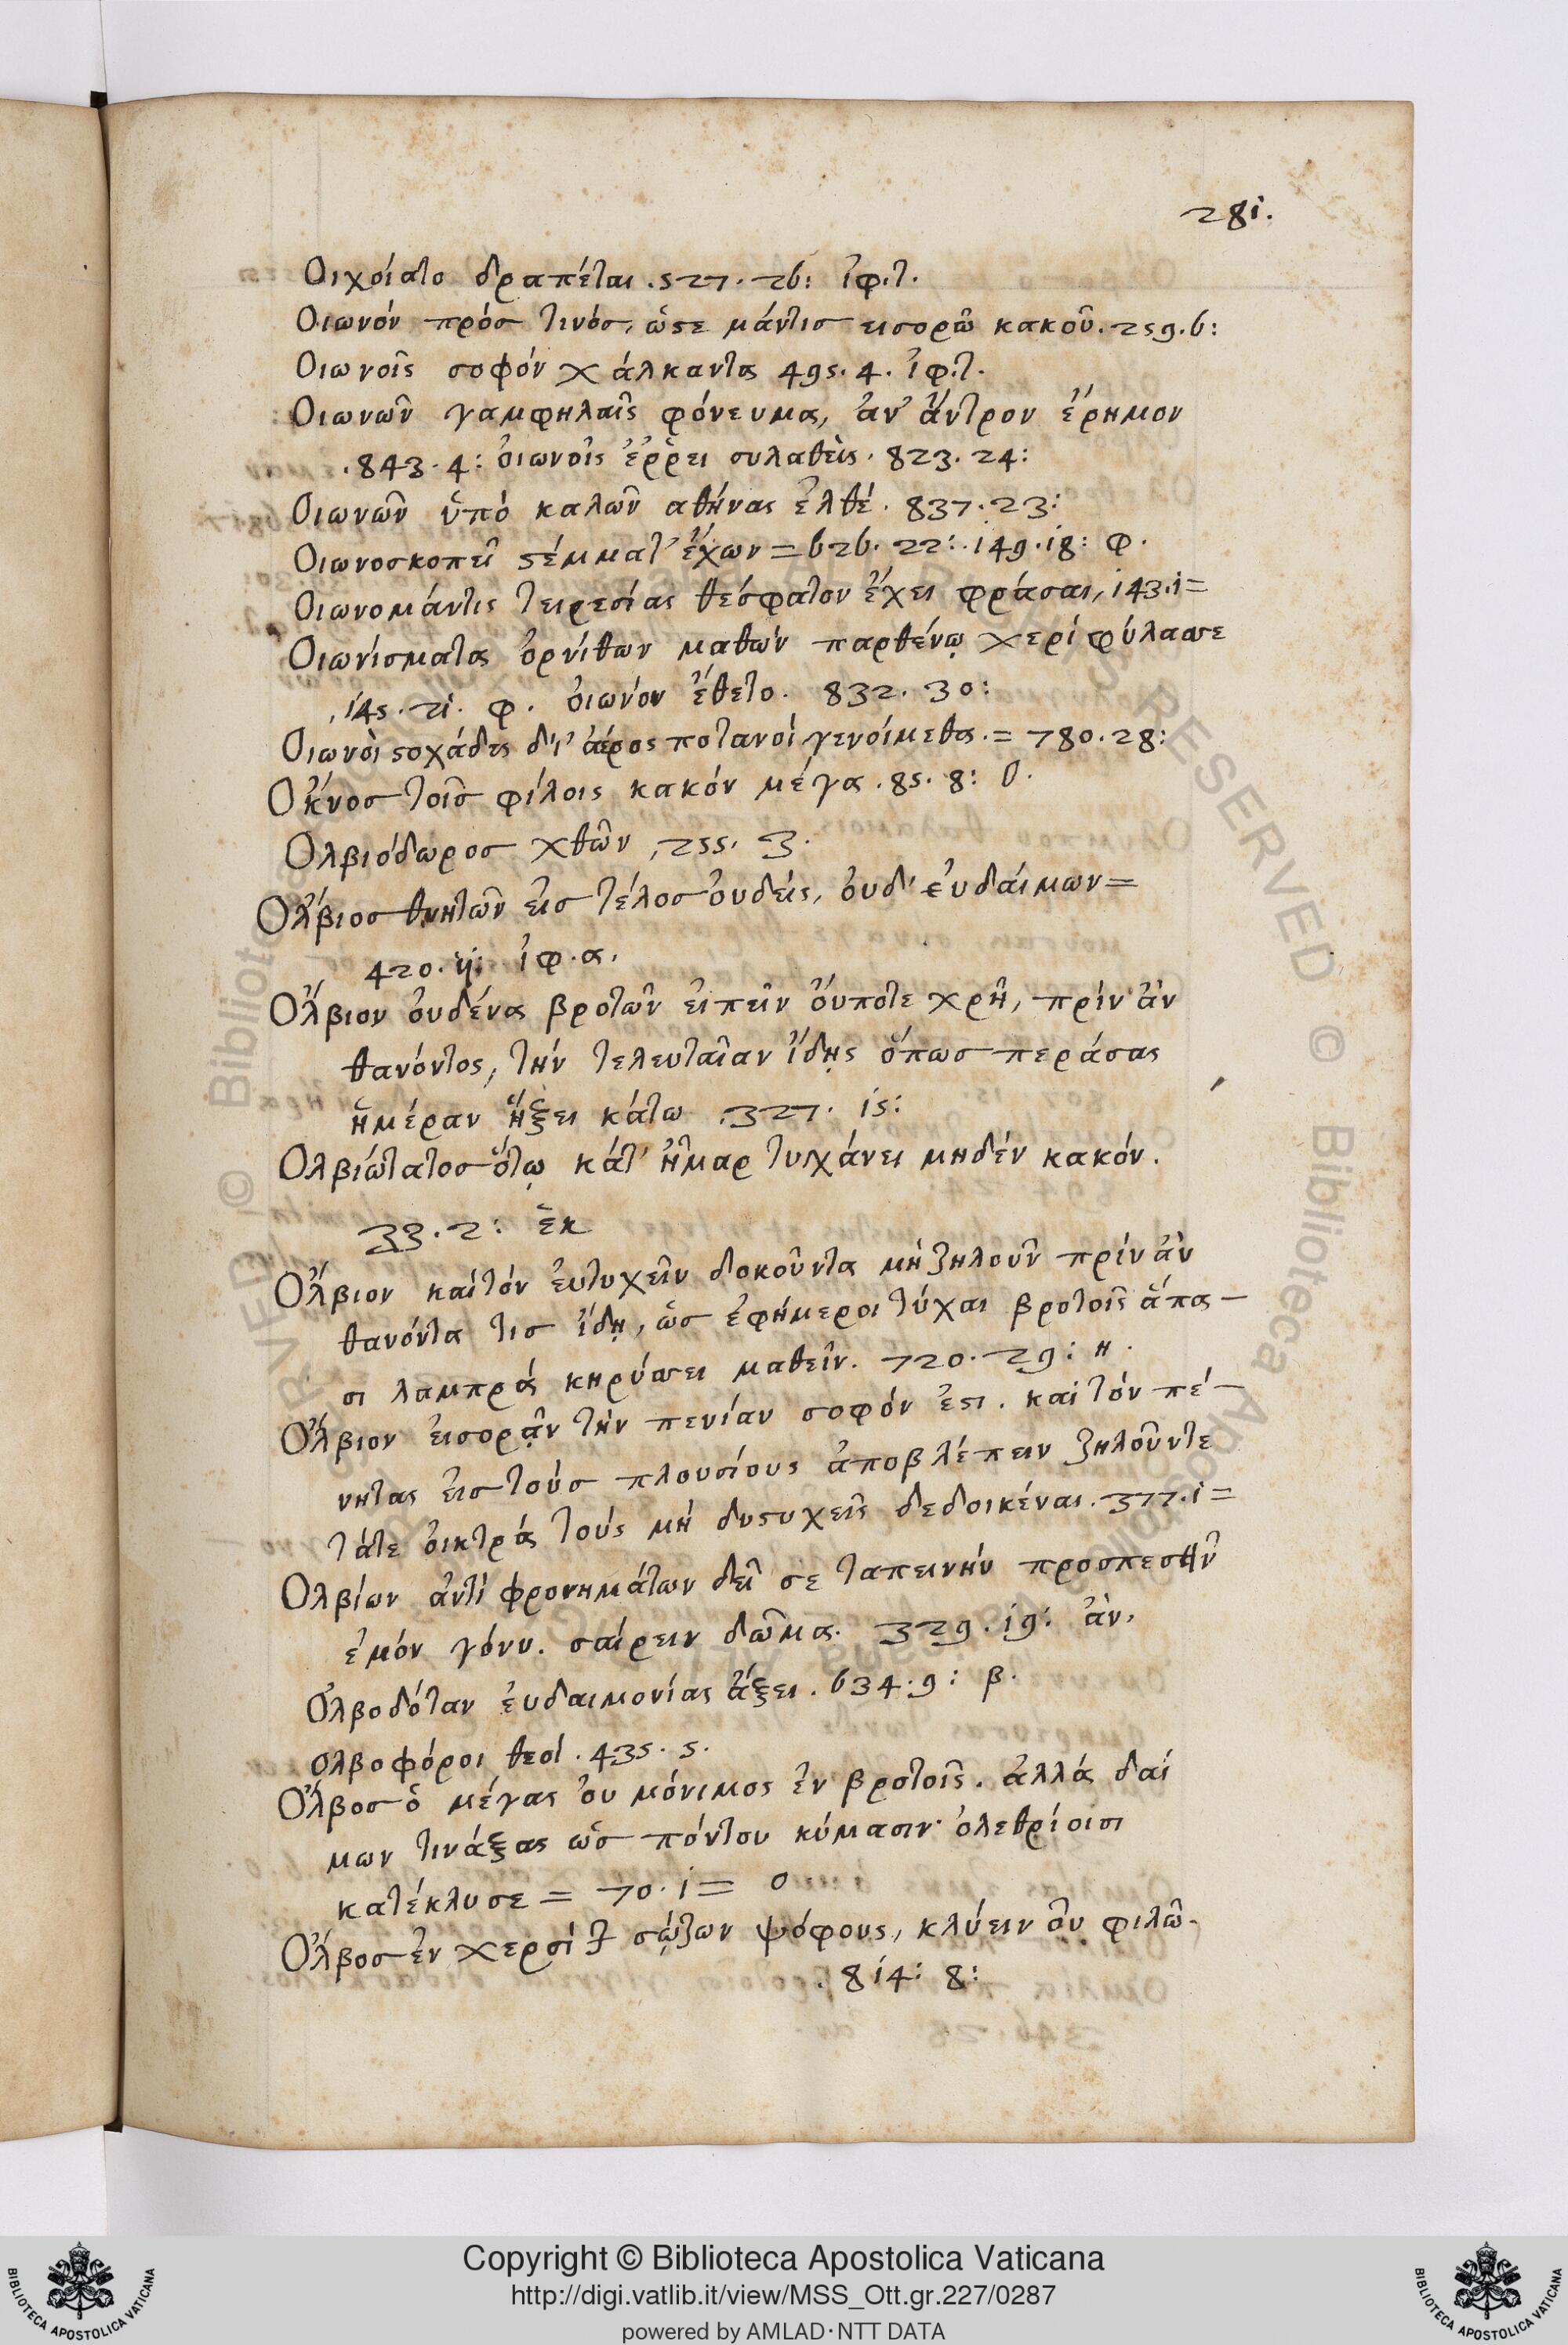 281.
Οιχοίατο δραπέται . 527 . 26: ἰφ.τ.
Οιωνόν πρός τινός, ὥστε μάντις εισορῶ κακοῦ. 259.6:
Οιωνοῖς σοφόν χάλκαντα 495. 4. ἰφ.τ.
Οιωνῶν γαμφηλαῖς φόνευμα, ἀν' ἄντρον ἔρημον
.843. 4: ὀιωνοῖς ἔῤῥει συλαθεὶς. 823. 24:
Οιωνῶν ὕπό καλῶν αθήνας ἐλθέ. 837. 23:
Οιωνοσκοπεῖ στέμματ' ἔχων = 626. 22:. 149. 18: φ.
Οιωνομάντις τειρεσίας θέσφατον ἔχει φράσαι, 143.1=
Οιωνίσματα ὀρνίθων μαθών παρθένῳ χερί φύλασσε
, 145. 21. φ. ὀιωνόν ἔθετο. 832. 30:
Οιωνοὶ στοχάδες δι' ἀέρος ποτανοὶ γενοίμεθα. = 780. 28:
Οκ̓νος τοῖς φίλοις κακόν μέγα . 85. 8: ο.
Ολβιόδωρος χθῶν , 255, 3.
Ολ̓βιος θνητῶν ἐις τέλος ὀυδείς, ὀυδ' ἐυδάιμων=
420. 11: ἰφ.α.
Ολ̓βιον ὀυδένα βροτῶν ἐιπεῖν ὄυποτε χρῆ, πρίν ἀν
θανόντος, τήν τελευταῖαν ἴδῃς ὅπως περάσας
ἡμέραν ἥξει κάτω .327. 15:
Ολβιώτατος ὅτῳ κάτ' ἦμαρ τυγχάνει μηδέν κακόν.
33. 2: ἑκ
Ολ̓βιον καὶ τόν ἐυτυχεῖν δοκοῦντα μή ζηλοῦν πρίν ἀν
θανόντα τις ἴδῃ, ὡς ἐφήμεροι τύχαι βροτοῖς ἅπα-
σι λαμπρά κηρύσσει μαθεῖν. 720. 29: η.
Ολ̓βιον ἐισορᾷν τήν πενίαν σοφόν ἐστι. καὶ τόν πέ-
νητας ἐις τούς πλουσίους ἀποβλέπειν ζηλοῦντε
τάτε ὀικτρά τούς μή δυστυχεῖς δεδοικέναι. 377.1=
Ολβίων ἀντὶ φρονημάτων δεῖ σε ταπεινήν προσπεσεῖν
ἐμόν γόνυ. σαίρειν δῶμα. 329. 19: ἀν.
Ολ̓βοδόταν ἐυδαιμονίας ἄξει. 634. 9: β.
ολβοφόροι θεοί . 435. 5.
Ολ̓βος ὁ μέγας ὀυ μόνιμος ἐν βροτοῖς. ἀλλά δαί
μων τινάξας ὡς πόντου κύμασιν ὀλεθρίοισι
κατέκλυσε = 70. 1= ο
Ολ̓βος ἐν χερσὶ σῴζων ψόφους, κλύειν ὀυ φιλῶ.
. 814: 8:
Copyright © Biblioteca Apostolica Vaticana
http://digi.vatlib.it/view/MSS_Ott.gr.227/0287
powered by AMLAD·NTT DATA